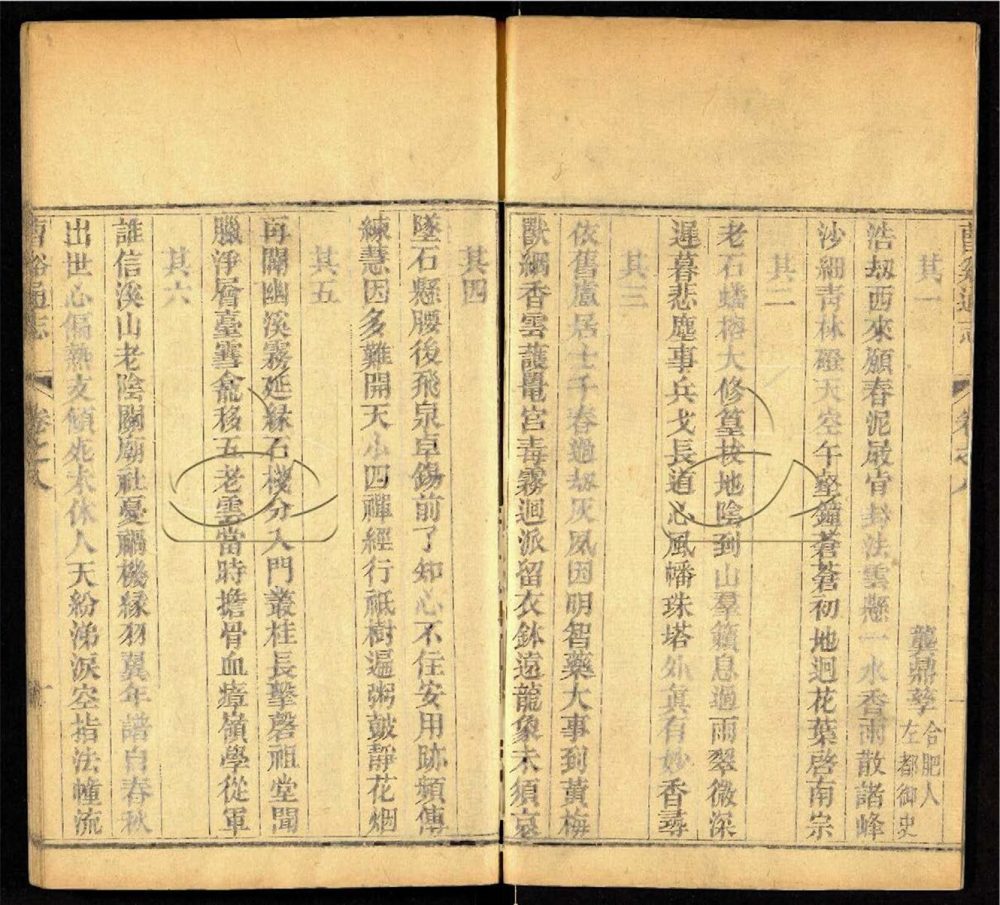 曹谿通志 卷之八
其一
龔鼎孳 合肥人左都御史
浩劫西來願春泥嚴宵封法雲懸一水香雨散諸峰
沙細青林磴天空午壑鐘蒼蒼初地迥花葉啓南宗
其二
老石蟠榕大修篁拔地陰到山羣籟息過雨翠微深
遲暮悲塵事兵戈長道心風幡珠塔外眞有妙香尋
其三
依舊盧居士千春過劫灰夙因明智藥大事到黃梅
獸網香雲護鼉宮毒霧迴派留衣鉢遠龍象未須哀
其四
墜石懸腰後飛泉卓錫前了知心不住安用跡頻傳
練慧因多難開天小四禪經行祇樹遍粥皷靜花烟
其五
再闢幽溪霧延緣石棧分入門叢桂長擊磬祖堂聞
臘淨層臺雪龕移五老雲當時擔骨血瘴嶺學從軍
其六
誰信溪山老陰關廟社憂禍機緣羽翼年譜自春秋
出世心偏熱支傾死未休人天紛涕淚空指法幢流
曹谿通志 卷之八